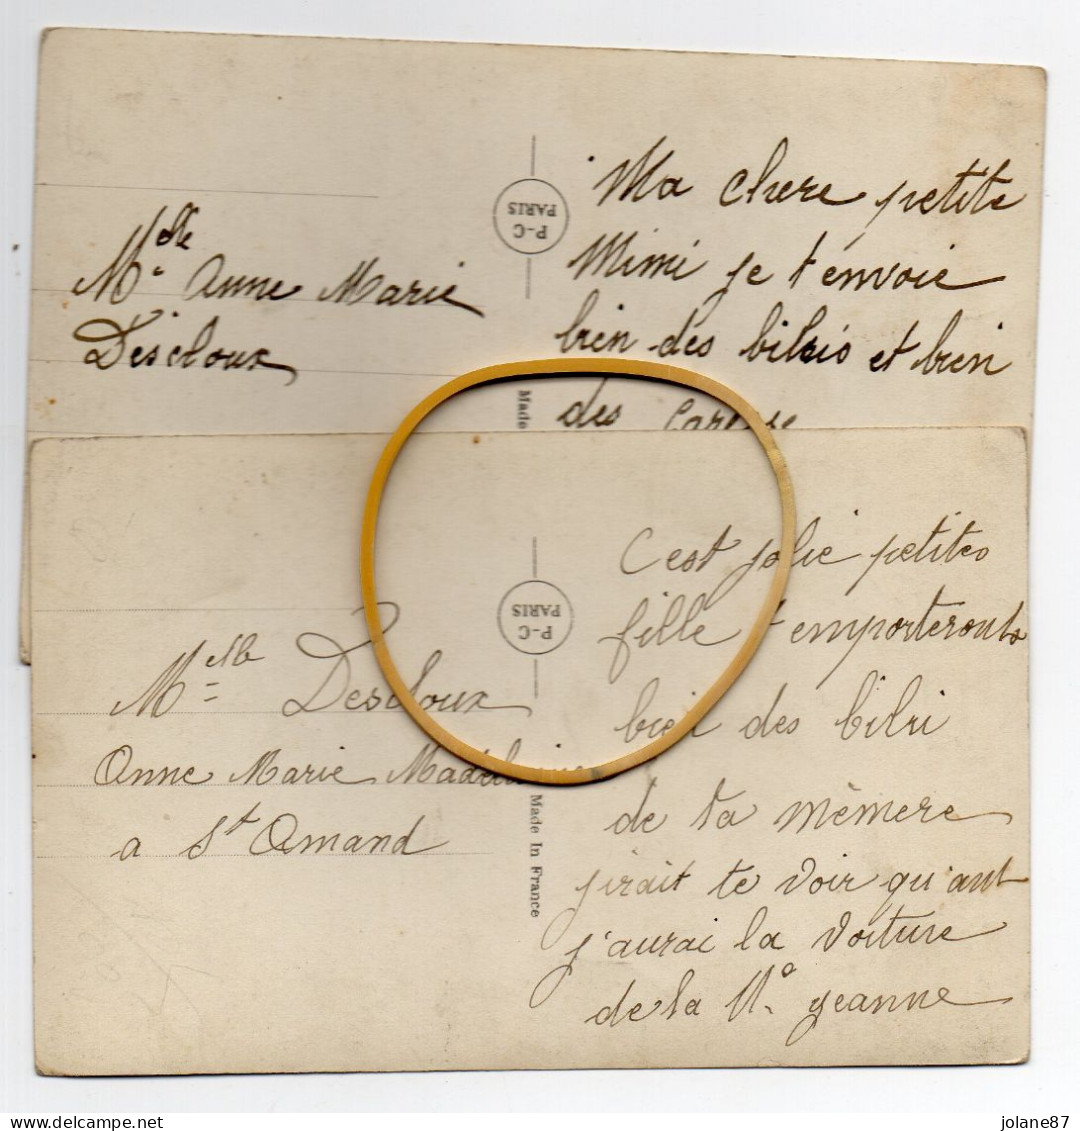 Ma chere petite
Mimi je t'envoie
bien des bibis et bien
des
P-C
PARIS
Mlle Anne Marie
Descloux
Made
C'est jolie petites
fille t'emporterouts
bien des bibi
de ta mèmere
jirait te voir qu'ant
j'aurai la voiture
de la Me jeanne
P-C
PARIS
Melle Descloux
Anne Marie
a St Amand
Made In France
jolane87